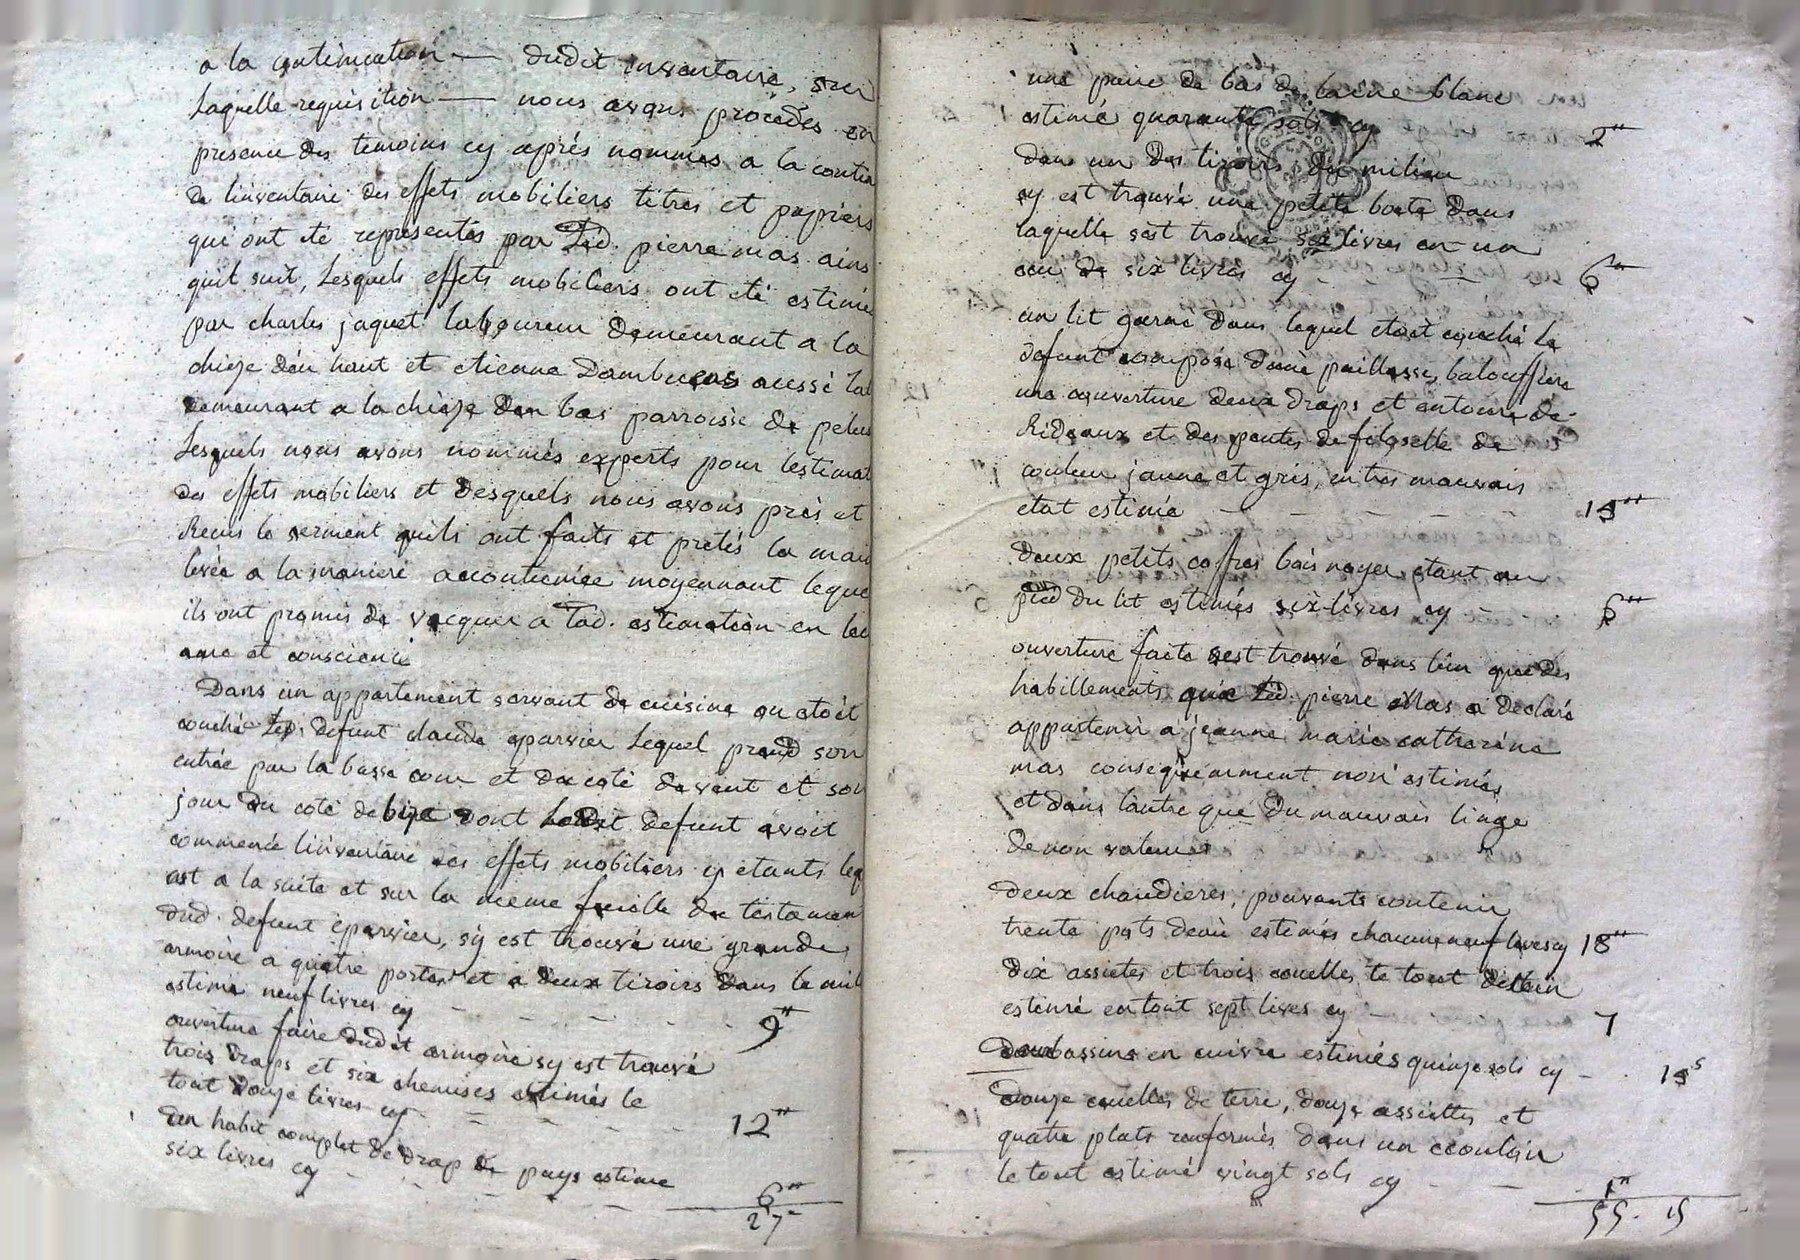 a la continuation — dudit inventaire, sur
Laquelle requisition — nous avons procédés en
presence des temoins cy aprés nommés a la contin
de linventaire des effets mobiliers titres et papiers
qui ont eté representés par Led. pierre mas ains
quil suit, Lesquels effets mobiliers ont eté estimé
par charles jaquet laboureur demeurant a la
chieze den haut et etienne Dambuens aussi lab
demeurant a la chieze den bas parroisse de pelus
Lesquels nous avons nommés experts pour lestimat
des effets mobiliers et desquels nous avons pris et
Recus le serment quils ont faits et pretés la main
levée a la maniere accoutumée moyennant leque
ils ont promis de vacquer a Lad. estimation en leu
ame et conscience
Dans un appartement servant de cuisine ou etoit
couché Led. defunt claude eparvier Lequel prend son
entrée par la basse cour et du coté de vent et son
jour du coté de bize dont Ledit defunt avoit
commencé linventaire des effets mobiliers y etants leq
est a la suite et sur la meme feuille du testamen
dud. defunt eparvier, sy est trouvé une grande
armoire a quatre portes et a deux tiroirs dans le mil
estimé neuf livres cy - - - - 9"
ouverture faire dudit armoire sy est trouvé
trois draps et six chemises estimés le
tout douze livres cy - - - - 12"
un habit complet de drap de pays estimé
six livres cy - - - - 6"
27-
une paire de bas de laine blanc
estimé quarante sols cy 2"
dans un des tiroirs du milieu
sy est trouvé une petite boete dans
laquelle sest trouvé six livres en un
ecu de six livres cy - - 6"
un lit garni dans lequel etoit couché Le
defunt composé dune paillasse, balouffiere
une couverture deux draps et entoure de
Rideaux et des pentes de filoselle de
couleur jaune et gris, en tres mauvais
etat estimé - - - - - 15"
deux petits coffres bois noyer etant au
pied du lit estimés six livres cy - 6"
ouverture faite sest trouvé dans lun que des
habillements que Led. pierre Mas a declaré
appartenir a jeanne marie catherine
mas consequemment non estimés
et dans lautre que du mauvais linge
de non valeur
deux chaudieres, pouvants contenir
trente pots deau estimés chacune neuf livres cy 18"
dix assietes et trois ecuelles le tout detain
estimé en tout sept livres cy - 7
deux bassins en cuivre estimés quinze sols cy - 15s
douze ecuelles de terre, douze assiettes et
quatre plats renfermés dans un ecouloir
le tout estimé vingt sols cy - - 1"
55. 15